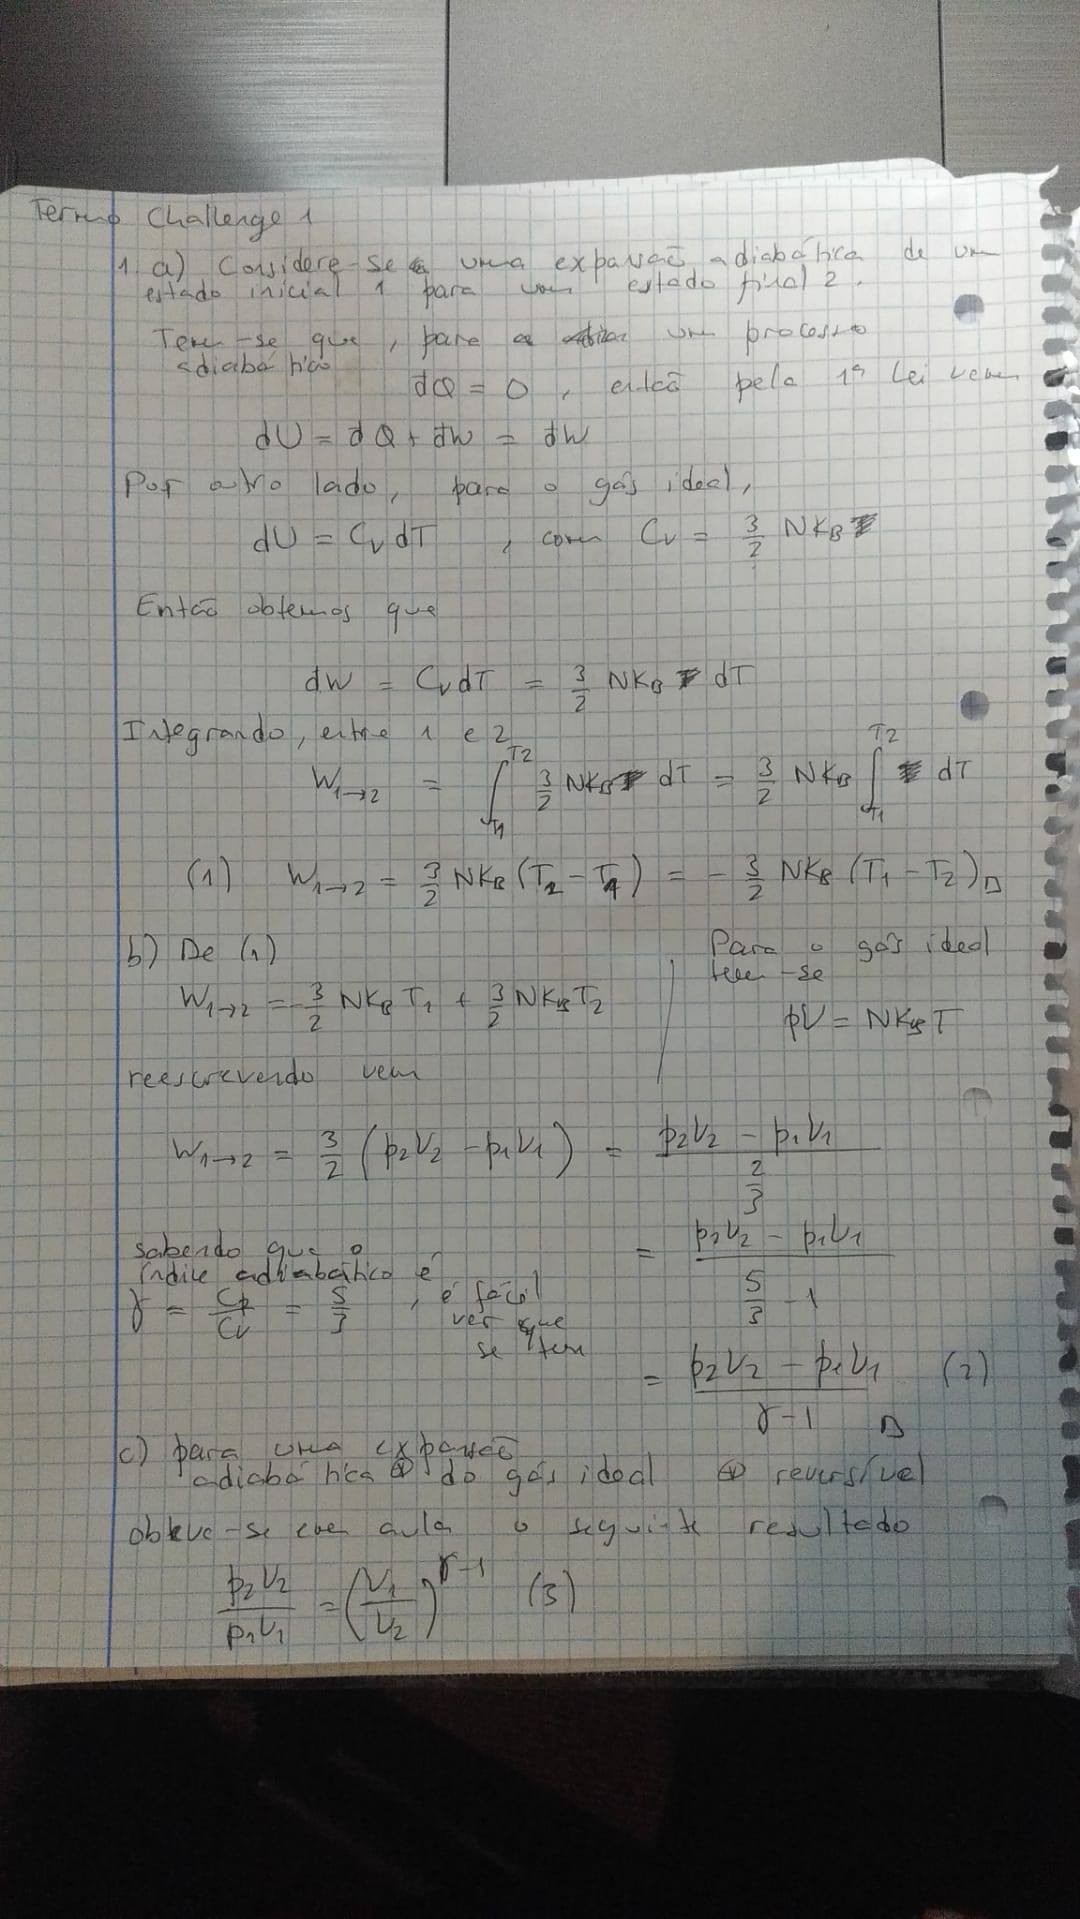 Termo Challenge 1
1. a) Considere-se uma expansão adiabática de um
estado inicial 1 para um estado final 2.
Tem-se que, para um processo
adiabático
đQ = 0, então pela 1ª Lei vem
dU = đQ + đW = đW
Por outro lado, para o gás ideal,
dU = CvdT, com Cv = 3/2 NKB
Então obtemos que
đW = CvdT = 3/2 NKB dT
Integrando, entre 1 e 2
W1→2 = ∫T1^T2 3/2 NKB dT = 3/2 NKB ∫T1^T2 dT
(1) W1→2 = 3/2 NKB (T2 - T1) = - 3/2 NKB (T1 - T2)
b) De (1)
W1→2 = - 3/2 NKB T1 + 3/2 NKB T2
Para o gás ideal
tem-se
pV = NKBT
reescrevendo vem
W1→2 = 3/2 (p2V2 - p1V1) = (p2V2 - p1V1) / (2/3)
= (p2V2 - p1V1) / (5/3 - 1)
sabendo que o
índice adiabático é
γ = Cp/Cv = 5/3, é fácil
ver que
se tem
= (p2V2 - p1V1) / (γ-1) (2)
c) para uma expansão
adiabática do gás ideal reversível
obteve-se em aula o seguinte resultado
p2V2/p1V1 = (V1/V2)^γ-1 (3)